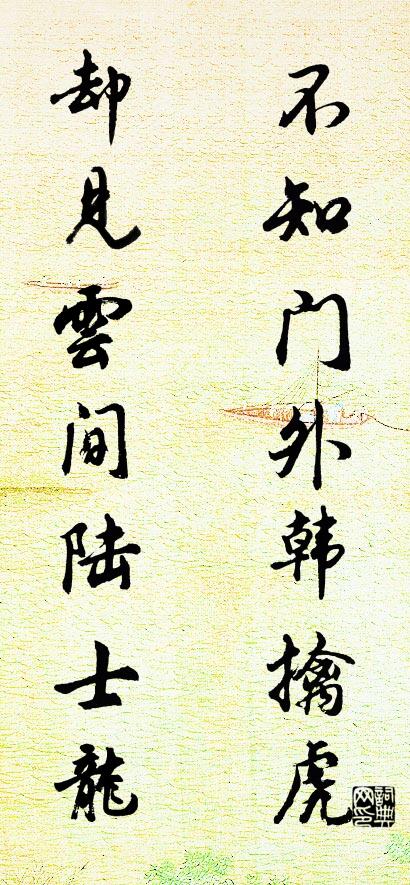 不知门外韩擒虎
却见雲间陆士龍
詞典网印